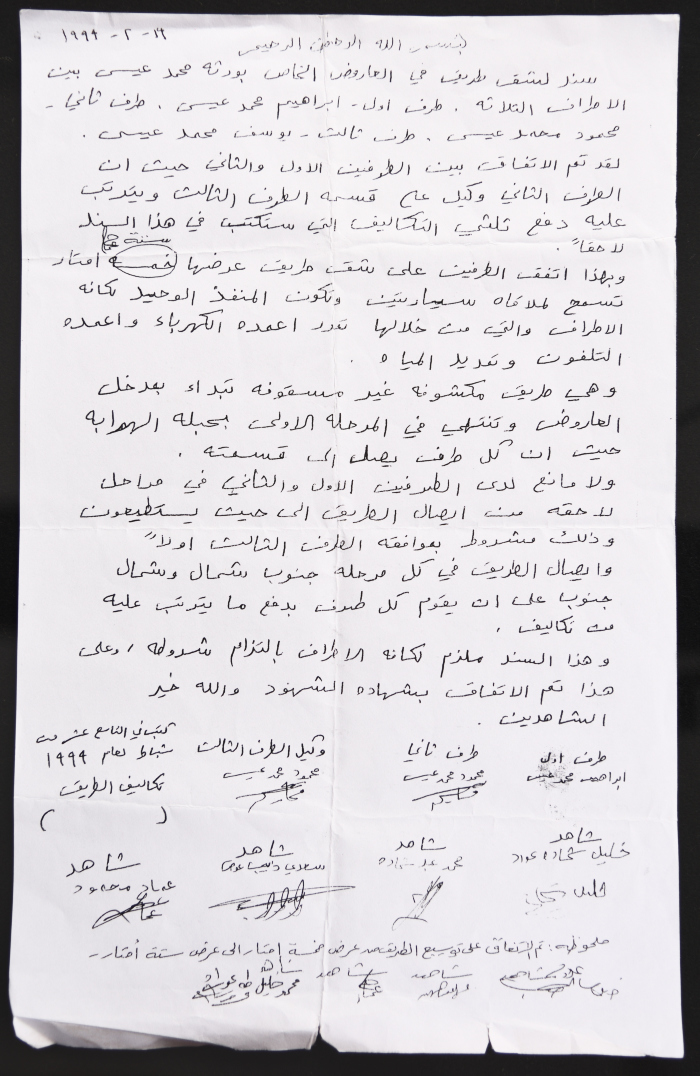 ١٩-٢-١٩٩٤
بسم الله الرحمن الرحيم
سند لشق طريق في العاروض الخاص بورثه محمد عيسى بين
الاطراف الثلاثه . طرف اول - ابراهيم محمد عيسى . طرف ثاني -
محمود محمد عيسى . طرف ثالث - يوسف محمد عيسى .
لقد تم الاتفاق بين الطرفين الاول والثاني حيث ان
الطرف الثاني وكيل على قسمه الطرف الثالث ويترتب
عليه دفع ثلثي التكاليف التي ستكتب في هذا السند
لاحقاً .
ستة
وبهذا اتفق الطرفين على شق طريق عرضها خمسه امتار
تسمح لملاقاه سيارتين وتكون المنفذ الوحيد لكافه
الاطراف والتي من خلالها تمدد اعمده الكهرباء واعمده
التلفون وتمديد المياه .
وهي طريق مكشوفه غير مسقوفه تبداء بمدخل
العاروض وتنتهي في المرحله الاولى بحبله الهوابه
حيث ان كل طرف يصل الى قسمته .
ولا مانع لدى الطرفين الاول والثاني في مراحل
لاحقه من ايصال الطريق الى حيث يستطيعون
وذلك مشروط بموافقه الطرف الثالث اولاً
وايصال الطريق في كل مرحله جنوب شمال وشمال
جنوب على ان يقوم كل طرف بدفع ما يترتب عليه
من تكاليف .
وهذا السند ملزم لكافه الاطراف بالتزام شروطه , وعلى
هذا تم الاتفاق بشهاده الشهود والله خير
الشاهدين .
طرف اول
ابراهيم محمد عيسى
طرف ثاني
محمود محمد عيسى
وكيل الطرف الثالث
محمود محمد عيسى
كتب في التاسع عشر من
شباط لعام ١٩٩٤
تكاليف الطريق
( )
شاهد
خليل شحاده عواد
شاهد
محمد
شاهد
سعدي
شاهد
عماد محمود
ملحوظه :- تم الاتفاق على توسيع الطريق من عرض خمسة امتار الى عرض ستة أمتار -
شاهد
شاهد
شاهد
محمد خليل